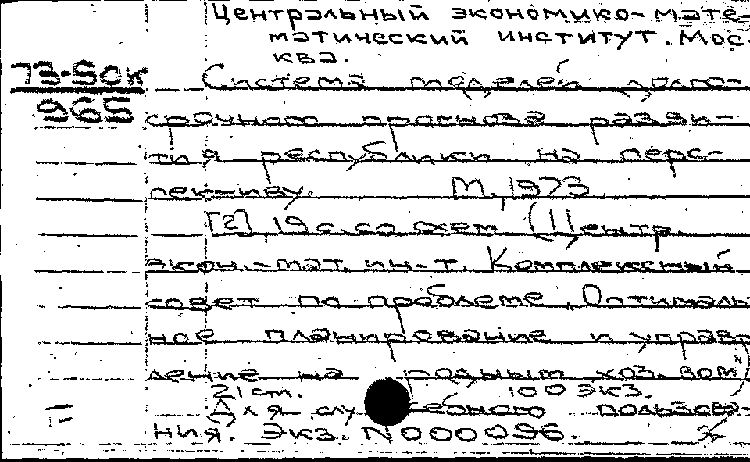 Центральный экономико-мате-
матический институт. Мос-
ква.
73-50к
965
Система моделей долго-
срочного прогноза разви-
тия республики на перс-
пективу. М., 1973
[2], 19 с. со схем. (Центр.
экон.-мат. ин-т. Комплексный
совет по проблеме "Оптималь-
ное планирование и управ-
ление на родным хоз-вом")
21 см. 100 экз.
Для слу ебного пользова-
ния. Экз. N000096.